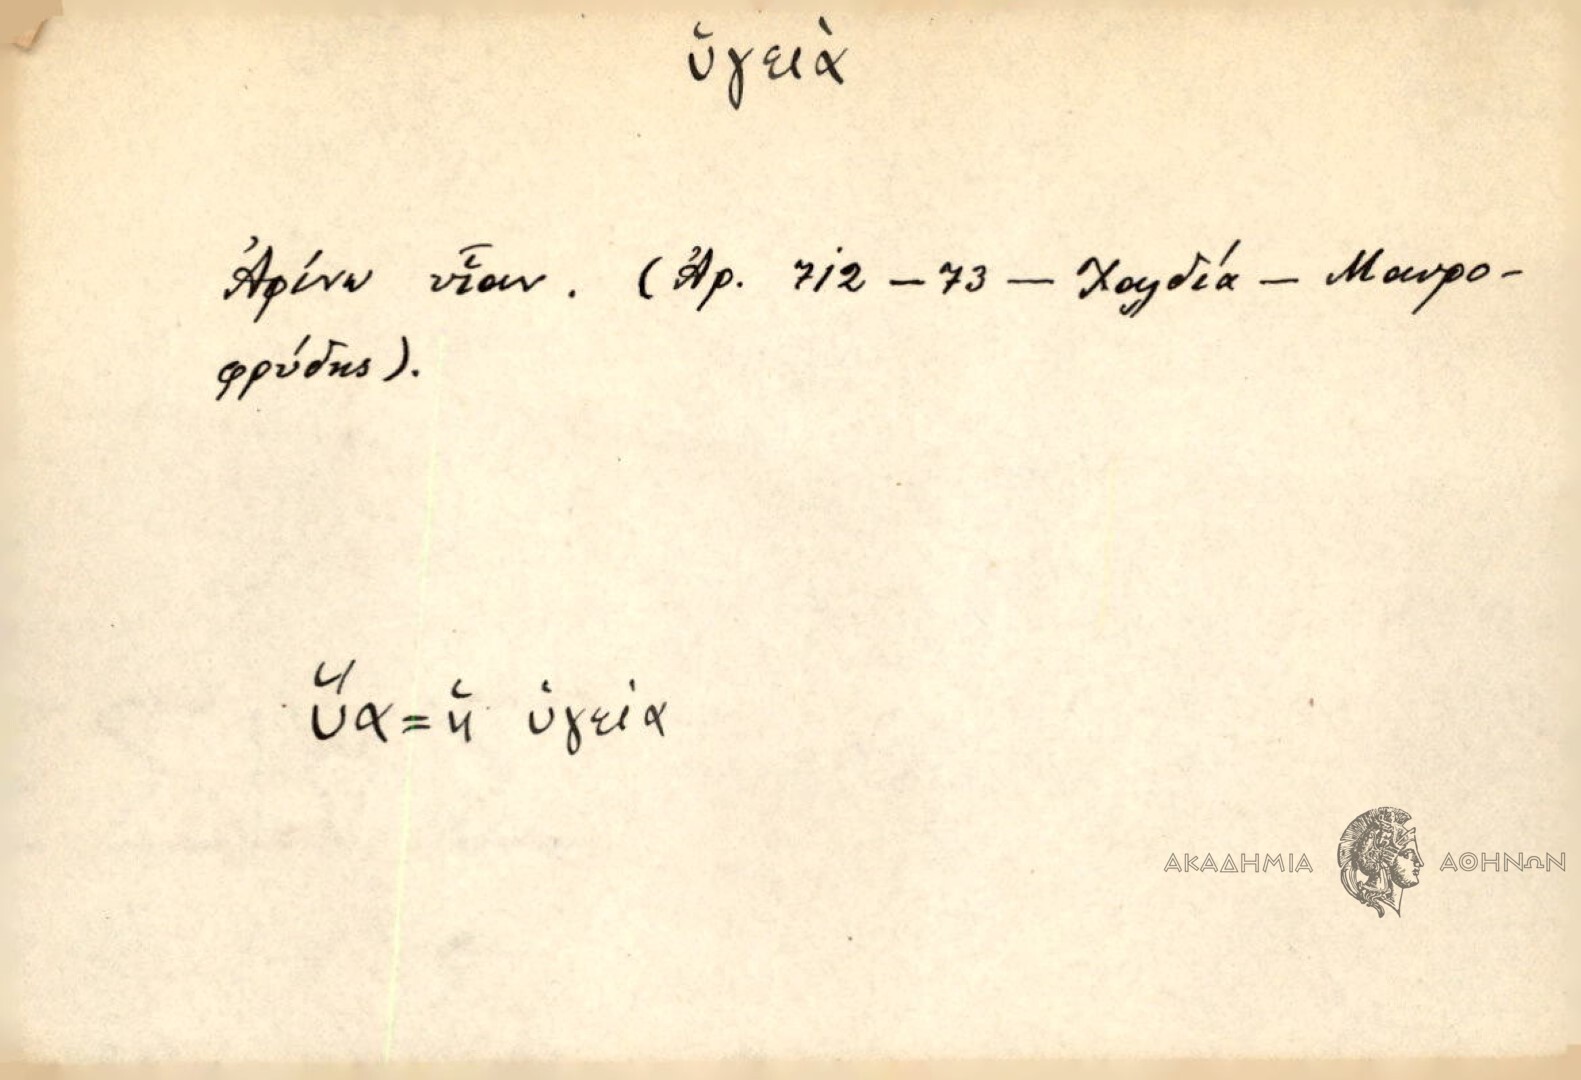 ὑγειὰ
Ἀφίνω υἷαν. (Ἀρ. 712 – 73 – Χαλδία – Μαυρο-
φρύδης).
ὕα = ἡ ὑγεία
ΑΚΑΔΗΜΙΑ ΑΘΗΝΩΝ